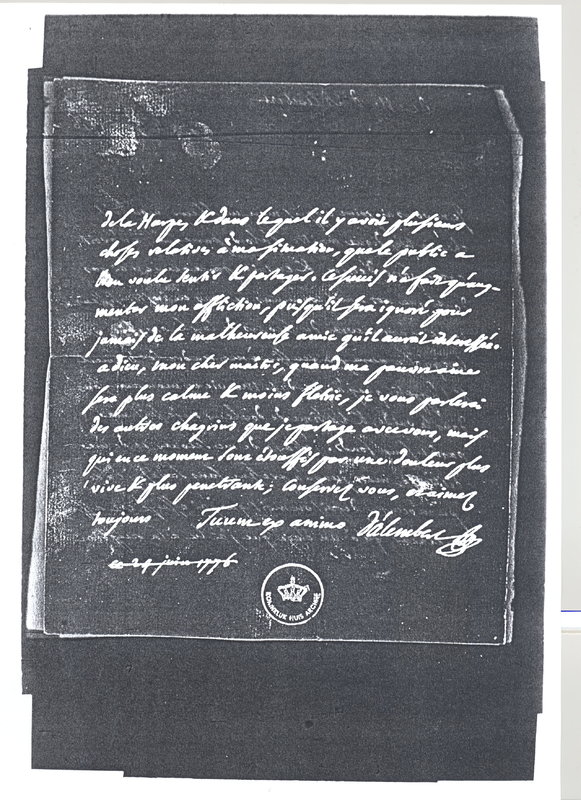 de la Harpe, & dans lequel il y avoit plusieurs
choses relatives à ma situation, que le public a
bien voulu sentir & partager. Ce succès n'a fait qu'aug-
menter mon affliction, puisqu'il sera ignoré pour
jamais de la malheureuse amie qu'il auroit interessée.
adieu, mon cher maître, quand ma pauvre ame
sera plus calme & moins flétrie, je vous parlerai
des autres chagrins que je partage avec vous, mais
qui en ce moment sont étouffés par une douleur plus
vive & plus penetrante; conservez vous, & aimez
toujours Tuum ex animo D'alembert
ce 24 juin 1776
KONINKLIJK HUIS ARCHIEF